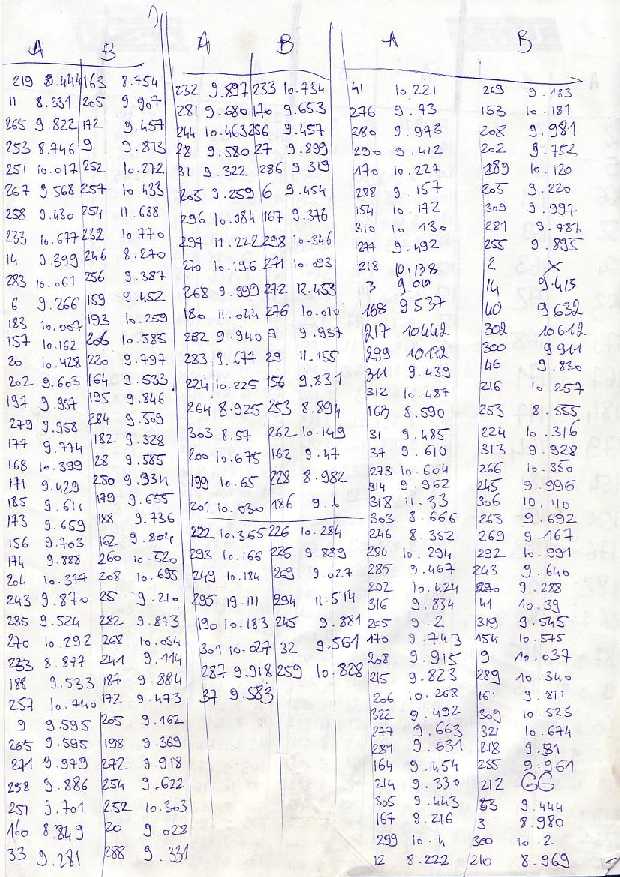 A B
219 8.444 163 8.754
11 8.331 205 9.907
265 9.822 172 9.457
253 8.746 9 9.873
251 10.017 252 10.272
267 9.568 257 10.433
258 9.430 254 11.638
233 10.677 232 10.770
14 9.399 246 8.270
283 10.061 256 9.387
6 9.266 159 8.452
183 10.057 193 10.259
157 10.162 206 10.585
20 10.428 220 9.797
202 9.603 164 9.533
192 9.957 195 9.846
279 9.958 284 9.509
177 9.774 182 9.328
168 10.399 28 9.585
171 9.429 250 9.934
185 9.611 179 9.655
173 9.659 188 9.736
156 9.703 162 9.804
174 9.888 260 10.520
204 10.327 208 10.695
243 9.870 25 9.210
285 9.524 282 9.873
270 10.292 268 10.054
233 8.877 241 9.114
188 9.533 187 9.884
257 10.740 172 9.473
9 9.595 205 9.162
265 9.595 198 9.369
271 9.979 272 9.918
298 9.886 254 9.622
251 9.701 252 10.303
160 8.849 20 9.028
33 9.281 288 9.331
A B
232 9.897 233 10.734
281 9.680 170 9.653
244 10.463 256 9.457
28 9.580 27 9.899
31 9.322 286 9.319
205 9.259 6 9.454
296 10.084 167 9.376
297 11.222 298 10.846
210 10.196 271 10.093
268 9.999 272 12.453
180 11.044 276 10.010
282 9.940 9 9.937
283 9.677 29 11.155
224 10.225 156 9.831
264 8.925 253 8.894
303 8.57 262 10.149
200 10.675 162 9.47
199 10.65 228 8.982
201 10.530 186 9.6
292 10.365 226 10.284
293 10.66 225 9.889
249 10.184 269 9.027
295 19.111 294 11.514
190 10.183 245 9.881
301 10.027 32 9.561
287 9.918 259 10.828
37 9.583
A B
41 10.221 269 9.183
276 9.73 163 10.181
280 9.973 208 9.981
290 9.412 202 9.752
170 10.227 289 10.120
288 9.157 205 9.220
154 10.172 309
310 10.130 281 9.787
277 9.492 255 9.895
218 10.138 2 X
3 14 9.415
168 9.537 40 9.632
217 10.442 302 10.612
299 10.132 300 9.911
311 9.439 46 9.830
312 10.487 216 10.257
163 8.590 253 8.555
31 9.485 224 10.316
37 9.610 313 9.928
273 10.604 266 10.350
314 9.962 245 9.996
318 11.33 306 10.110
303 8.666 263 9.692
246 8.352 269 9.167
286 10.294 292 10.991
285 9.467 243 9.640
202 10.424 270 9.288
316 9.834 41 10.39
205 9.2 319 9.545
170 9.743 154 10.575
208 9.915 9 10.037
215 9.823 289 10.340
206 10.268 16 9.811
322 9.492 309 10.523
277 9.663 321 10.674
281 9.631 218 9.51
164 9.454 285 9.961
214 9.330 212 GG
305 9.443 53 9.444
167 8.216 3 8.980
299 10.4 300 10.2
12 8.222 210 8.969